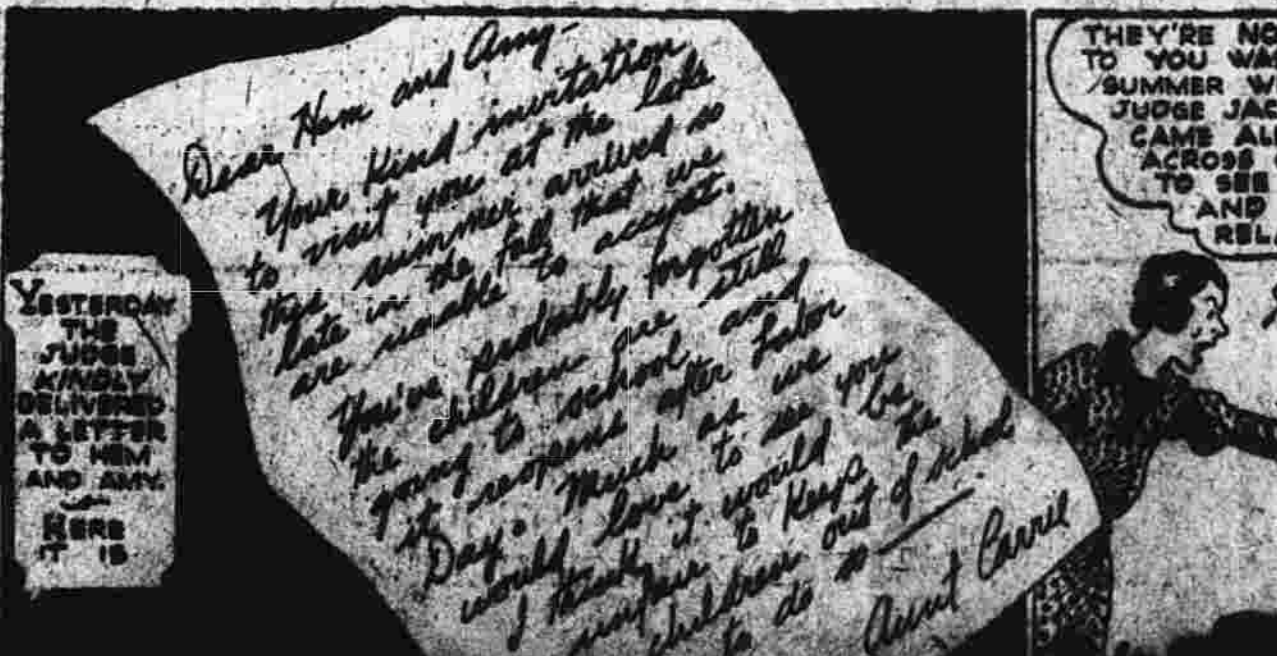 YESTERDAY
THE
JUDGE
KINDLY
DELIVERED
A LETTER
TO HEM
AND AMY.
HERE
IT IS
Dear Hem and Amy-
Your kind invitation
to visit you at the lake
this summer arrived so
late in the fall that we
are unable to accept.
You've probably forgotten
the children are still
going to school and
it reopens after Labor
Day. Much as we
would love to see you
I think it would be
unfair to keep the
children out of school
to do so
Aunt Carrie
THEY'RE NO
TO YOU WA
SUMMER W
JUDGE JAC
CAME AL
ACROSS
TO SEE
AND
REL